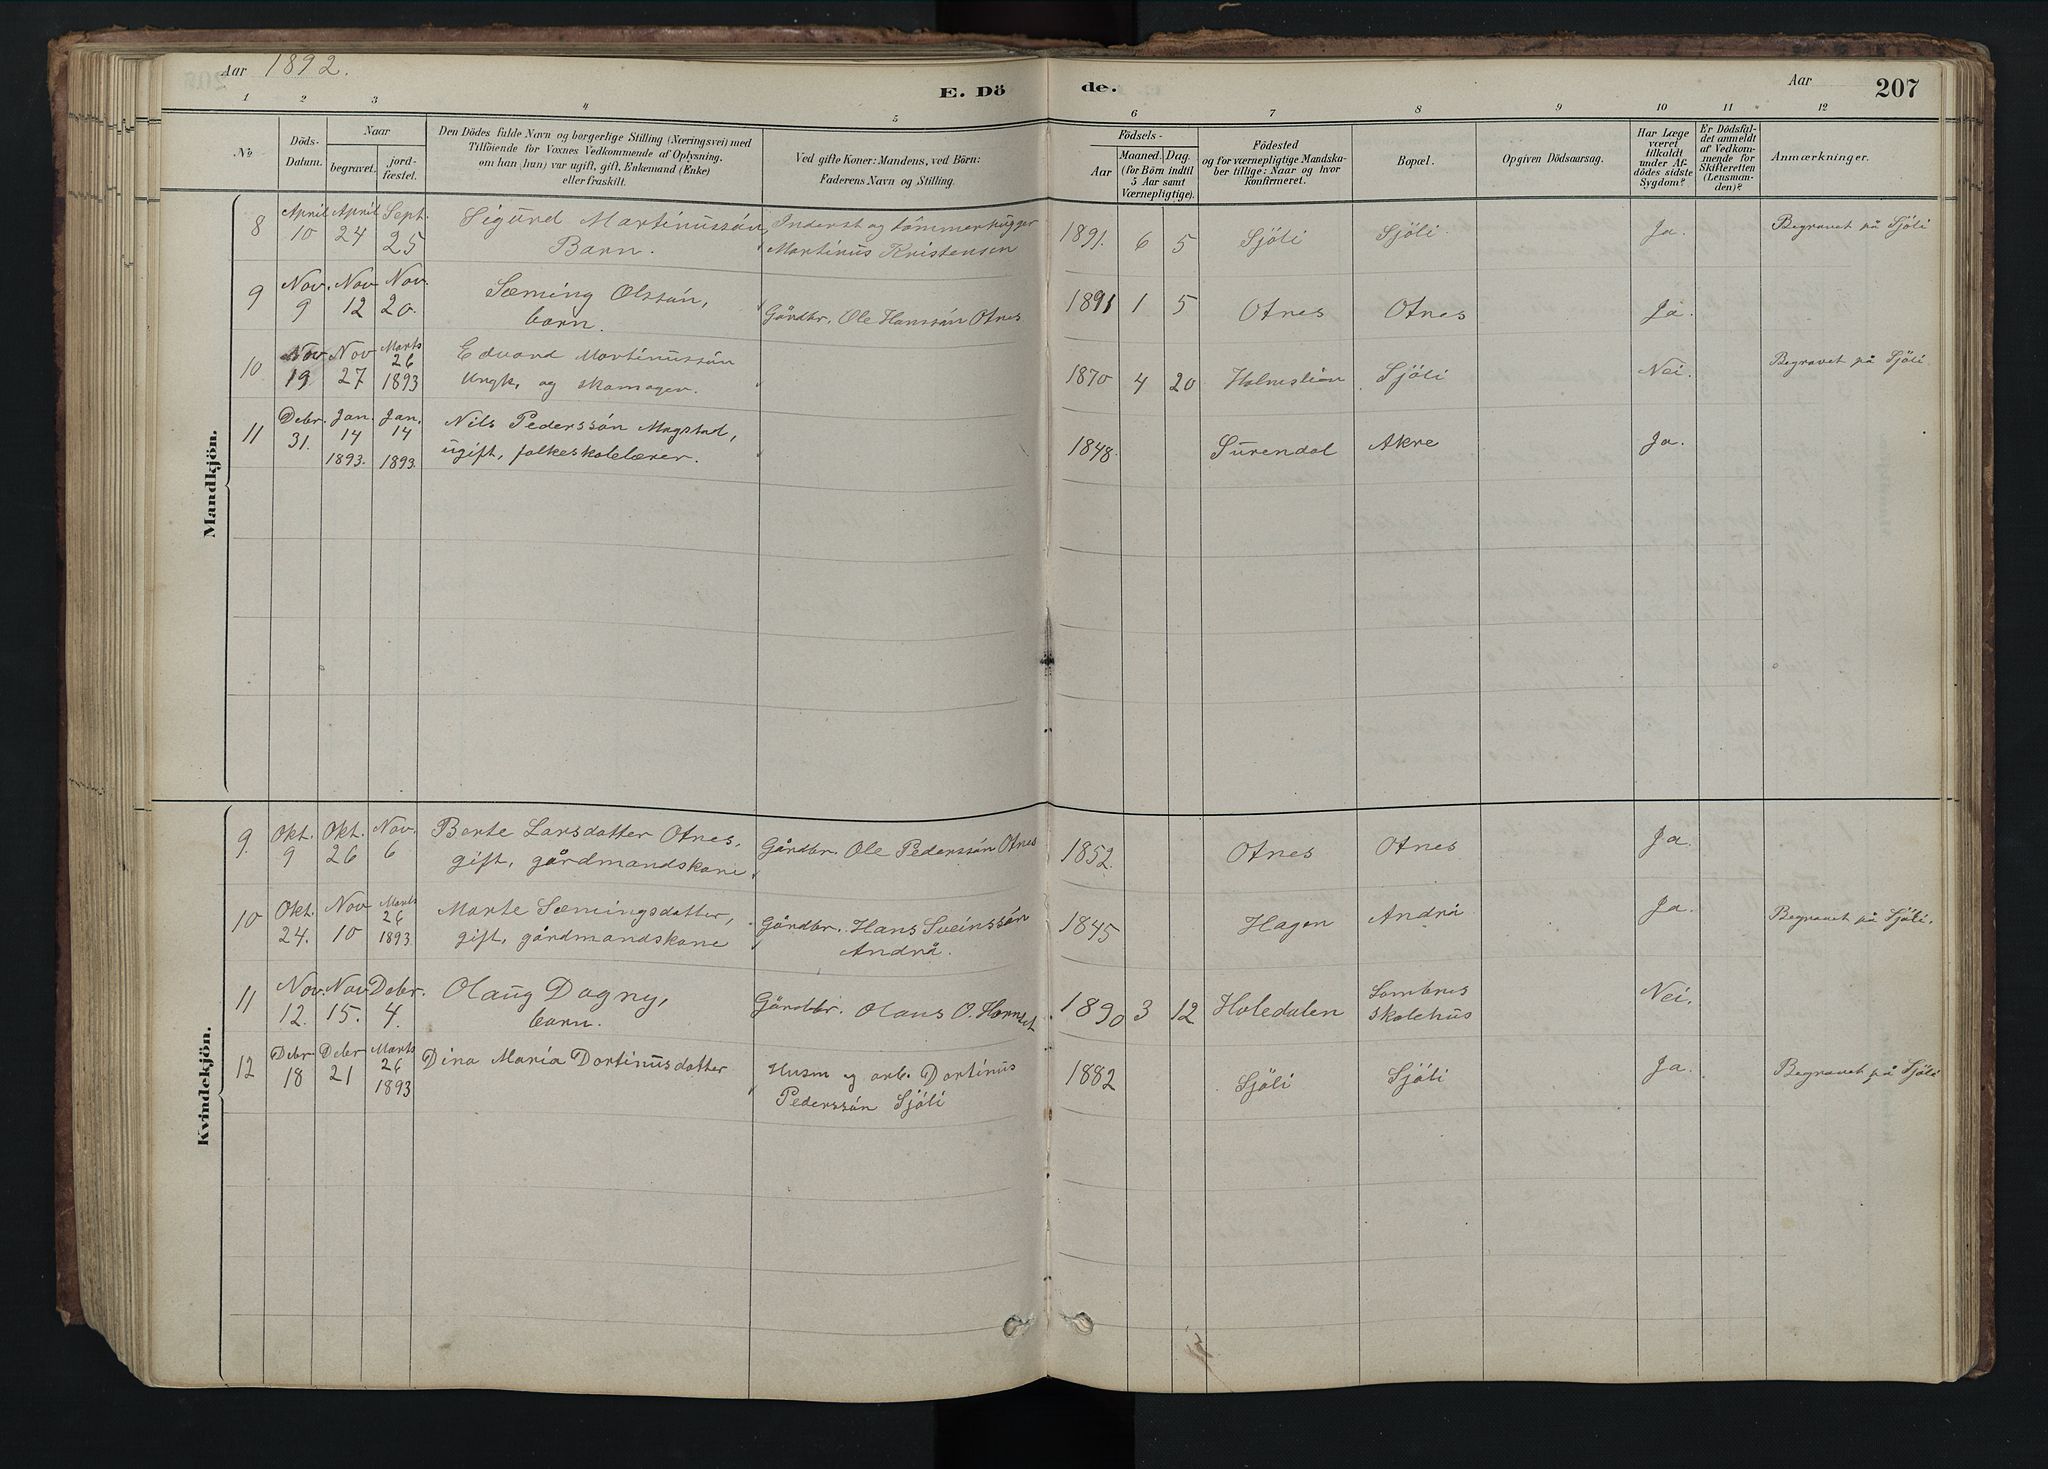 Aar 1892.
E. Döde.
Aar
207
1 2 3 4 5 6 7 8 9 10 11 12
No
Döds-Datum.
Naar
begravet.
jord-fæstet.
Den Dödes fulde Navn og borgerlige Stilling (Næringsvei) med
Tilföiende for Voxnes Vedkommende af Oplysning,
om han (hun) var ugift, gift, Enkemand (Enke)
eller fraskilt.
Ved gifte Koner: Mandens, ved Börn:
Faderens Navn og Stilling.
Födsels-
Aar
Maaned.
Dag.
(for Börn indtil
5 Aar samt
Værnepligtige).
Födested
og for værnepligtige Mandska-
ber tillige: Naar og hvor
konfirmeret.
Bopæl.
Opgiven Dödsaarsag.
Har Læge
været
tilkaldt
under Af-
dödes sidste
Sygdom?
Er Dödsfal-
det anmeldt
af Vedkom-
mende for
Skifteretten
(Lensman-
den)?
Anmærkninger.
Mandkjön.
8 April 10 April 24 Sept. 25 Sigurd Martinussön, Inderst og tömmerhugger 1891. 6 5 Sjöli Sjöli. Ja. Begravet på Sjöli
Barn. Martinus Kristensen
9 Nov. 9 Nov. 12 Nov. 20. Sæming Olssön, Gårdbr. Ole Hanssön Otnes 1891 1 5 Otnes Otnes Ja.
barn.
10 Nov 19 Nov 27 Marts 26 1893 Edvard Martinussön 1870 4 20 Holmslien Sjöli Nei. Begravet på Sjöli
Ungk. og skomager.
11 Debr. 31. Jan. 14 1893. Jan. 14 1893. Nils Pederssön Magstad, 1848. Surendal Akre Ja.
ugift, folkeskolelærer.
Kvindekjön.
9. Okt. 9 Okt. 26 Nov. 6 Berte Larsdatter Otnes, Gårdbr. Ole Pederssön Otnes 1852. Otnes Otnes Ja.
gift, gårdmandskone
10 Okt. 24. Nov 10 Marts 26 1893 Marte Sæmingsdatter, Gårdbr. Hans Sveinssön 1845 Hagen Andrå Ja. Begravet på Sjöli.
gift, gårdmandskone Andrå.
11 Nov. 12. Nov 15. Debr. 4. Olaug Dagny, Gårdbr. Olaus O. Hornset 1890 3 12 Holedalen Lombnes Nei.
barn. skolehus
12 Debr 18 Debr 21 Marts 26 1893 Dina Maria Dortinusdatter Husm og arb. Dortinus 1882 Sjöli Sjöli Ja. Begravet på Sjöli
Pederssön Sjöli